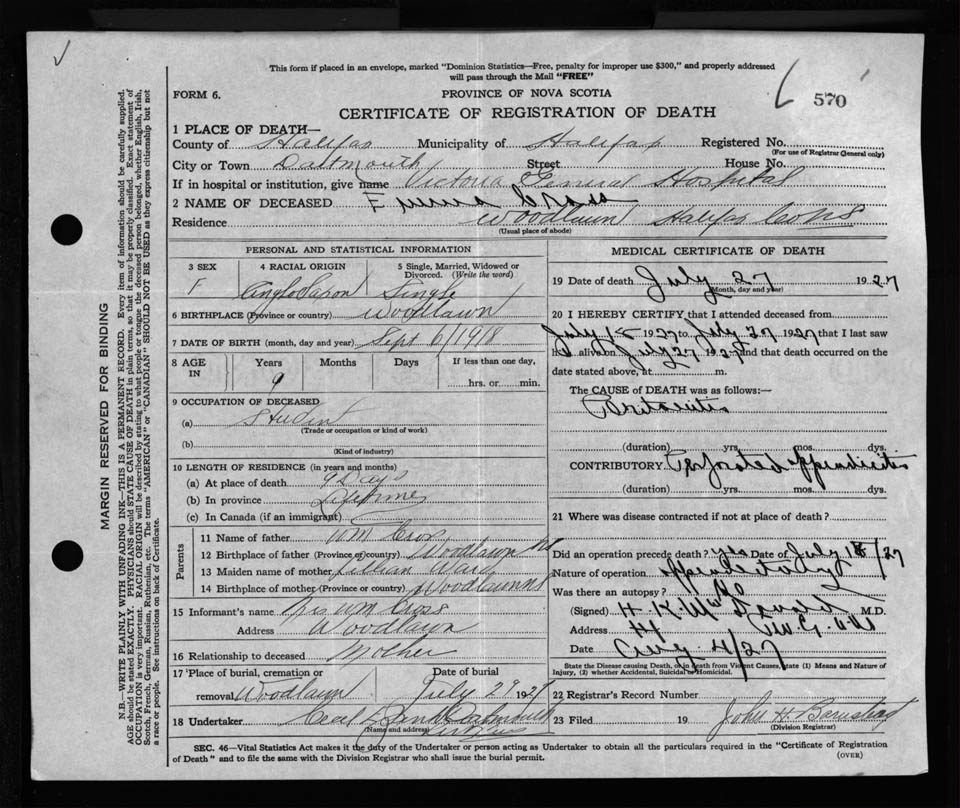 This form if placed in an envelope, marked "Dominion Statistics—Free, penalty for improper use $300," and properly addressed
will pass through the Mail "FREE"
FORM 6.
PROVINCE OF NOVA SCOTIA
570
CERTIFICATE OF REGISTRATION OF DEATH
1 PLACE OF DEATH—
County of Halifax Municipality of Halifax Registered No.
(For use of Registrar General only)
City or Town Dartmouth Street House No.
If in hospital or institution, give name Victoria General Hospital
2 NAME OF DECEASED Emma Cross
Residence Woodlawn Halifax Co NS
(Usual place of abode)
PERSONAL AND STATISTICAL INFORMATION
3 SEX F
4 RACIAL ORIGIN Anglo Saxon
5 Single, Married, Widowed or Divorced. (Write the word) Single
6 BIRTHPLACE (Province or country) Woodlawn
7 DATE OF BIRTH (month, day and year) Sept 6/1918
8 AGE IN Years Months Days If less than one day,
9 hrs. or min.
9 OCCUPATION OF DECEASED
(a) Student
(Trade or occupation or kind of work)
(b)
(Kind of industry)
10 LENGTH OF RESIDENCE (in years and months)
(a) At place of death 9 Days
(b) In province Lifetime
(c) In Canada (if an immigrant)
Parents
11 Name of father Wm Cross
12 Birthplace of father (Province or country) Woodlawn NS
13 Maiden name of mother Lillian Ward
14 Birthplace of mother (Province or country) Woodlawn NS
15 Informant's name Mrs Wm Cross
Address Woodlawn
16 Relationship to deceased Mother
17 Place of burial, cremation or removal Woodlawn
Date of burial July 29 1927
18 Undertaker Dartmouth
(Name and address)
MEDICAL CERTIFICATE OF DEATH
19 Date of death July 27 1927
(Month, day and year)
20 I HEREBY CERTIFY that I attended deceased from
July 1927 to July 27 1927 that I last saw
h alive on July 27 1927 and that death occurred on
date stated above, at m.
The CAUSE of DEATH was as follows:—
Peritonitis
(duration) yrs. mos. dys.
CONTRIBUTORY Perforated Appendicitis
(duration) yrs. mos. dys.
21 Where was disease contracted if not at place of death?
Did an operation precede death? yes Date of July 18/27
Nature of operation appendectomy
Was there an autopsy? No
(Signed) H K McDonald M.D.
Address
Date Aug 4/27
State the Disease causing Death, or in death from Violent Causes, state (1) Means and Nature of
Injury, (2) whether Accidental, Suicidal or Homicidal.
22 Registrar's Record Number
23 Filed 19 John H
(Division Registrar)
SEC. 46—Vital Statistics Act makes it the duty of the Undertaker or person acting as Undertaker to obtain all the particulars required in the "Certificate of Registration
of Death" and to file the same with the Division Registrar who shall issue the burial permit.
(OVER)
MARGIN RESERVED FOR BINDING
N.B.—WRITE PLAINLY WITH UNFADING INK—THIS IS A PERMANENT RECORD. Every item of information should be carefully supplied.
AGE should be stated EXACTLY. PHYSICIANS should STATE CAUSE OF DEATH in plain terms, so that it may be properly classified. Exact statement of
OCCUPATION is very important. RACIAL ORIGIN will be described by stating to what people or tongue the deceased person belonged, whether English, Irish,
Scotch, French, German, Russian, Ruthenian, etc. The terms "AMERICAN" or "CANADIAN" SHOULD NOT BE USED as they express citizenship but not
a race or people. See instructions on back of Certificate.